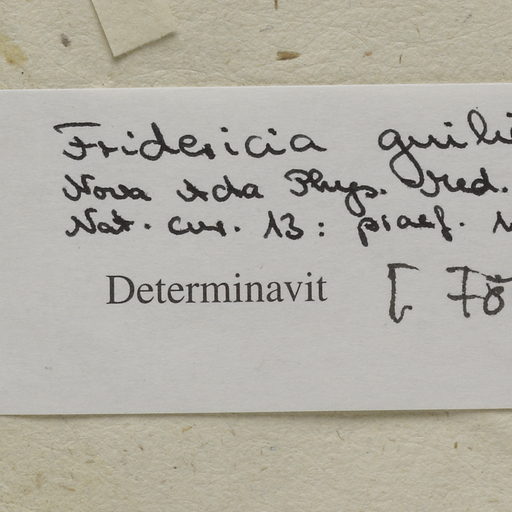 Fridericia guili
Nova Acta Phys. Med.
Nat. cur. 13: praef.
Determinavit [ Fö